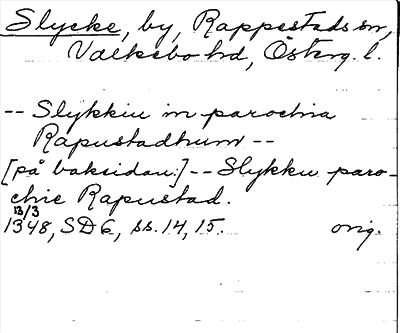 Slycke, by, Rappestads sn,
Valkebo hd, Österg. l.
-- Slykkiu in parochia
Rapustadhum --
[på baksidan:] -- Slykku paro-
chie Rapustad.
13/3
1348, SD 6, ss. 14, 15. orig.